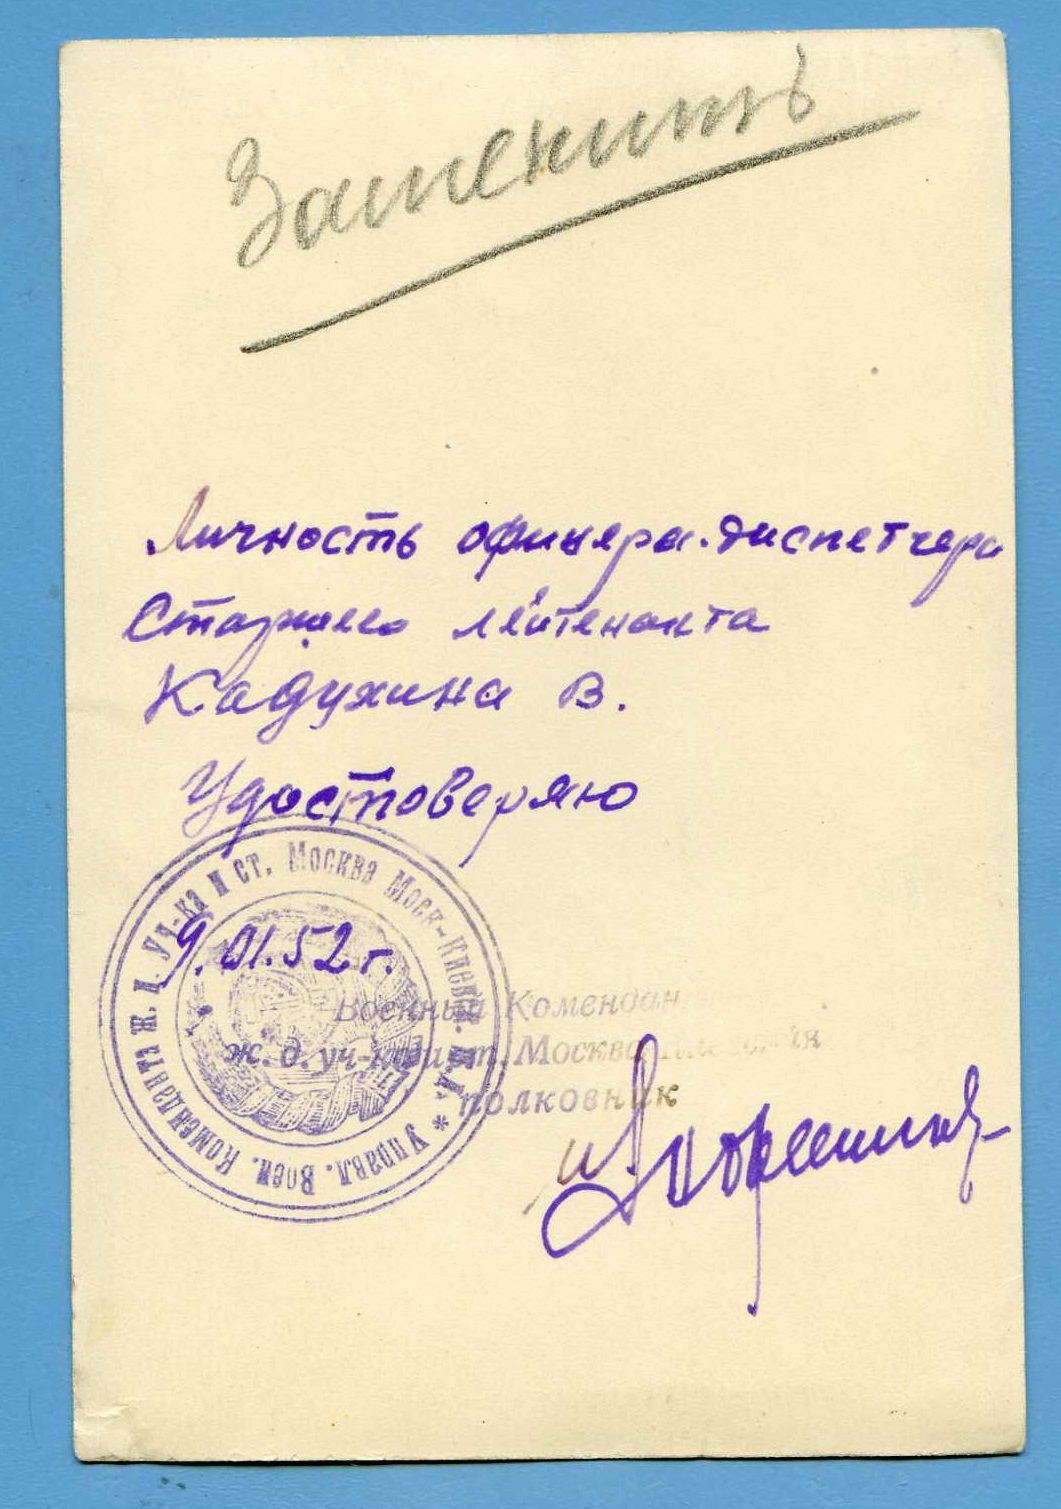 Заменить
Личность офицера-диспетчера
Старшего лейтенанта
Кадухина В.
Удостоверяю
9.01.52 г.
Управл. Воен. Коменданта Ж. Д. Уч-ка и ст. Москва Моск-Киевск.
Военный Комендант
ж. д. уч-ка и ст. Москва
полковник